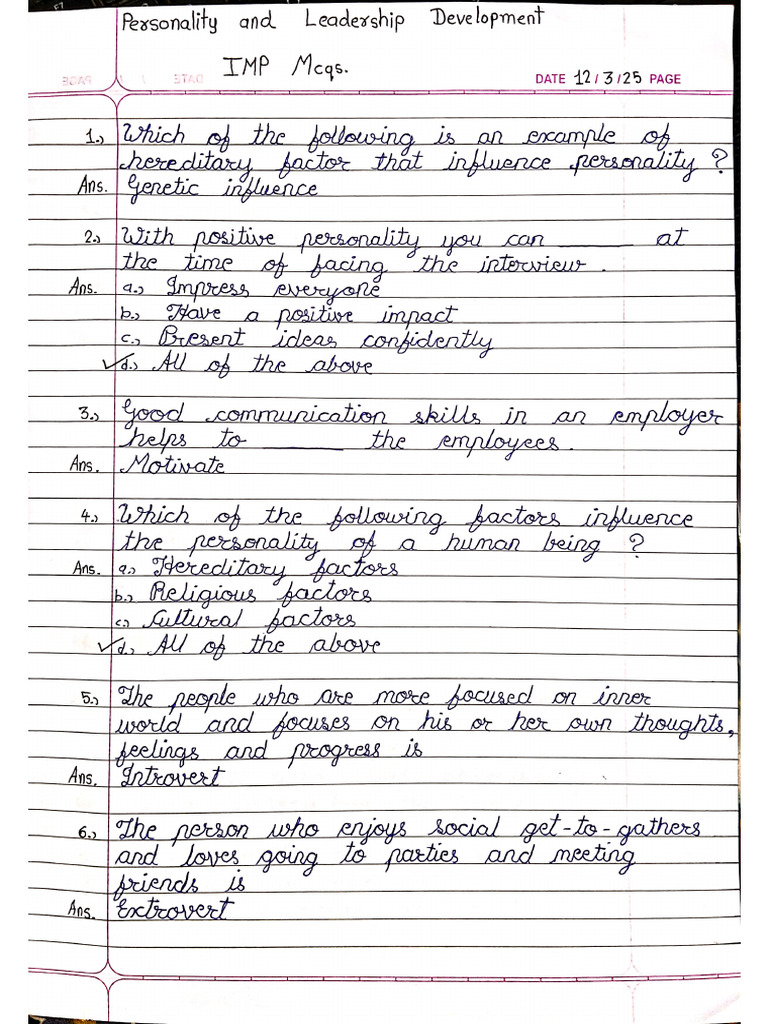 Personality and Leadership Development
IMP Mcqs.
DATE 12/3/25 PAGE
1.) Which of the following is an example of
hereditary factor that influence personality ?
Ans. Genetic influence
2.) With positive personality you can ______ at
the time of facing the interview.
Ans. a.) Impress everyone
b.) Have a positive impact
c.) Present ideas confidently
✓d.) All of the above
3.) Good communication skills in an employer
helps to ______ the employees.
Ans. Motivate
4.) Which of the following factors influence
the personality of a human being ?
Ans. a.) Hereditary factors
b.) Religious factors
c.) Cultural factors
✓d.) All of the above
5.) The people who are more focused on inner
world and focuses on his or her own thoughts,
feelings and progress is
Ans. Introvert
6.) The person who enjoys social get-to-gathers
and loves going to parties and meeting
friends is
Ans. Extrovert